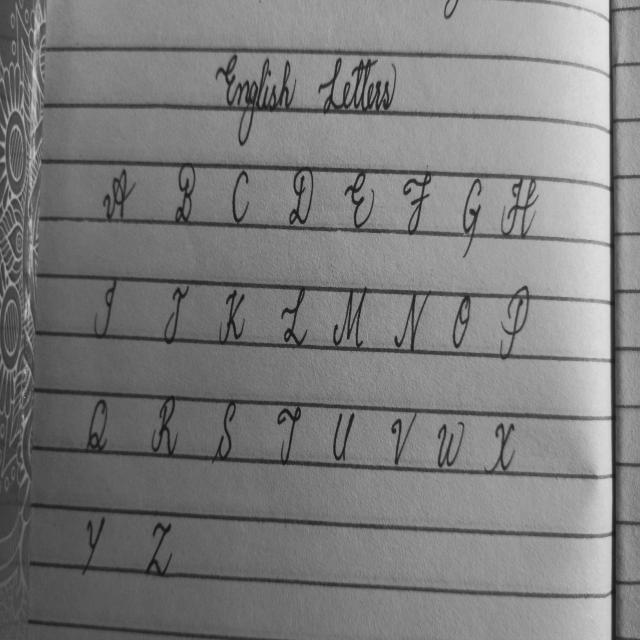 English Letters
A B C D E F G H
I J K L M N O P
Q R S T U V W X
Y Z